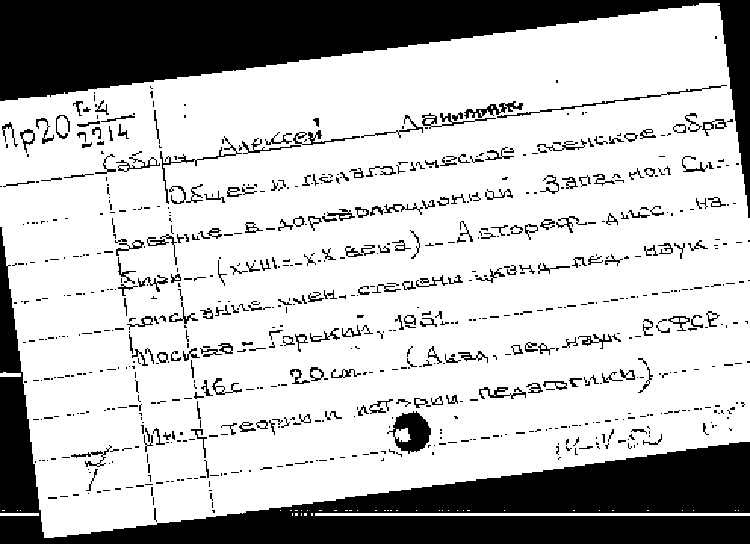 Пр20 Г-4
2214
Саблин, Алексей Данилович
Общее и педагогическое женское обра-
зование в дореволюционной Западной Си-
бири (XVIII - XX века). Автореф. дисс. на
соискание учен. степени канд. пед. наук.
Москва - Горький, 1951.
16 с. 20 см (Акад. пед. наук РСФСР.
Ин-т теории и истории педагогики)
14-IV-52